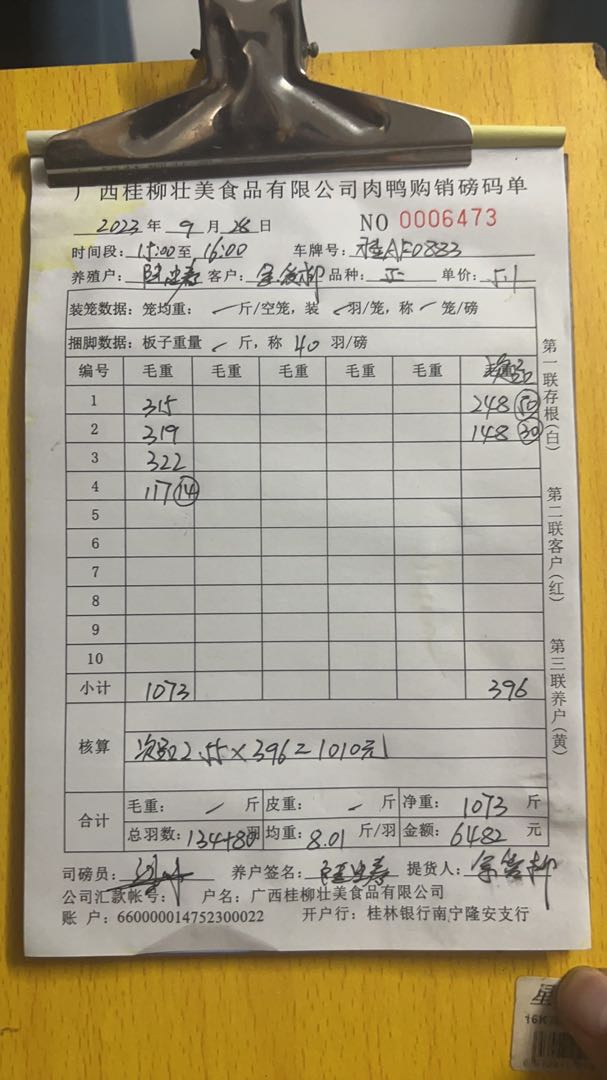 广西桂柳壮美食品有限公司肉鸭购销磅码单
2023年9月28日 NO 0006473
时间段: 15:00至16:00 车牌号: 桂AF0883
养殖户: 客户: 品种: 单价: 5.1
装笼数据: 笼均重: 斤/空笼, 装 羽/笼, 称 笼/磅
捆脚数据: 板子重量 斤, 称 40 羽/磅
编号 毛重 毛重 毛重 毛重 毛重
1 315 248 50
2 319 148 30
3 322
4 117 14
5
6
7
8
9
10
小计 1073 396
核算 2.55×396=1010元
合计 毛重: 斤 皮重: 斤 净重: 1073 斤
总羽数: 134+80羽 均重: 8.01 斤/羽 金额: 6482 元
司磅员: 养户签名: 提货人:
公司汇款帐号: 户名: 广西桂柳壮美食品有限公司
账 户: 660000014752300022 开户行: 桂林银行南宁隆安支行
第一联存根(白)
第二联客户(红)
第三联养户(黄)
16K